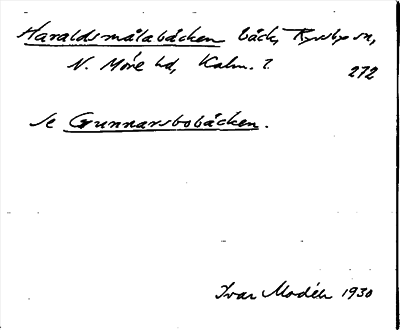 Haraldsmålabäcken bäck, Ryssby sn,
N. Möre hd, Kalm. l.
272
Se Gunnarsbobäcken.
Ivar Modéer 1930